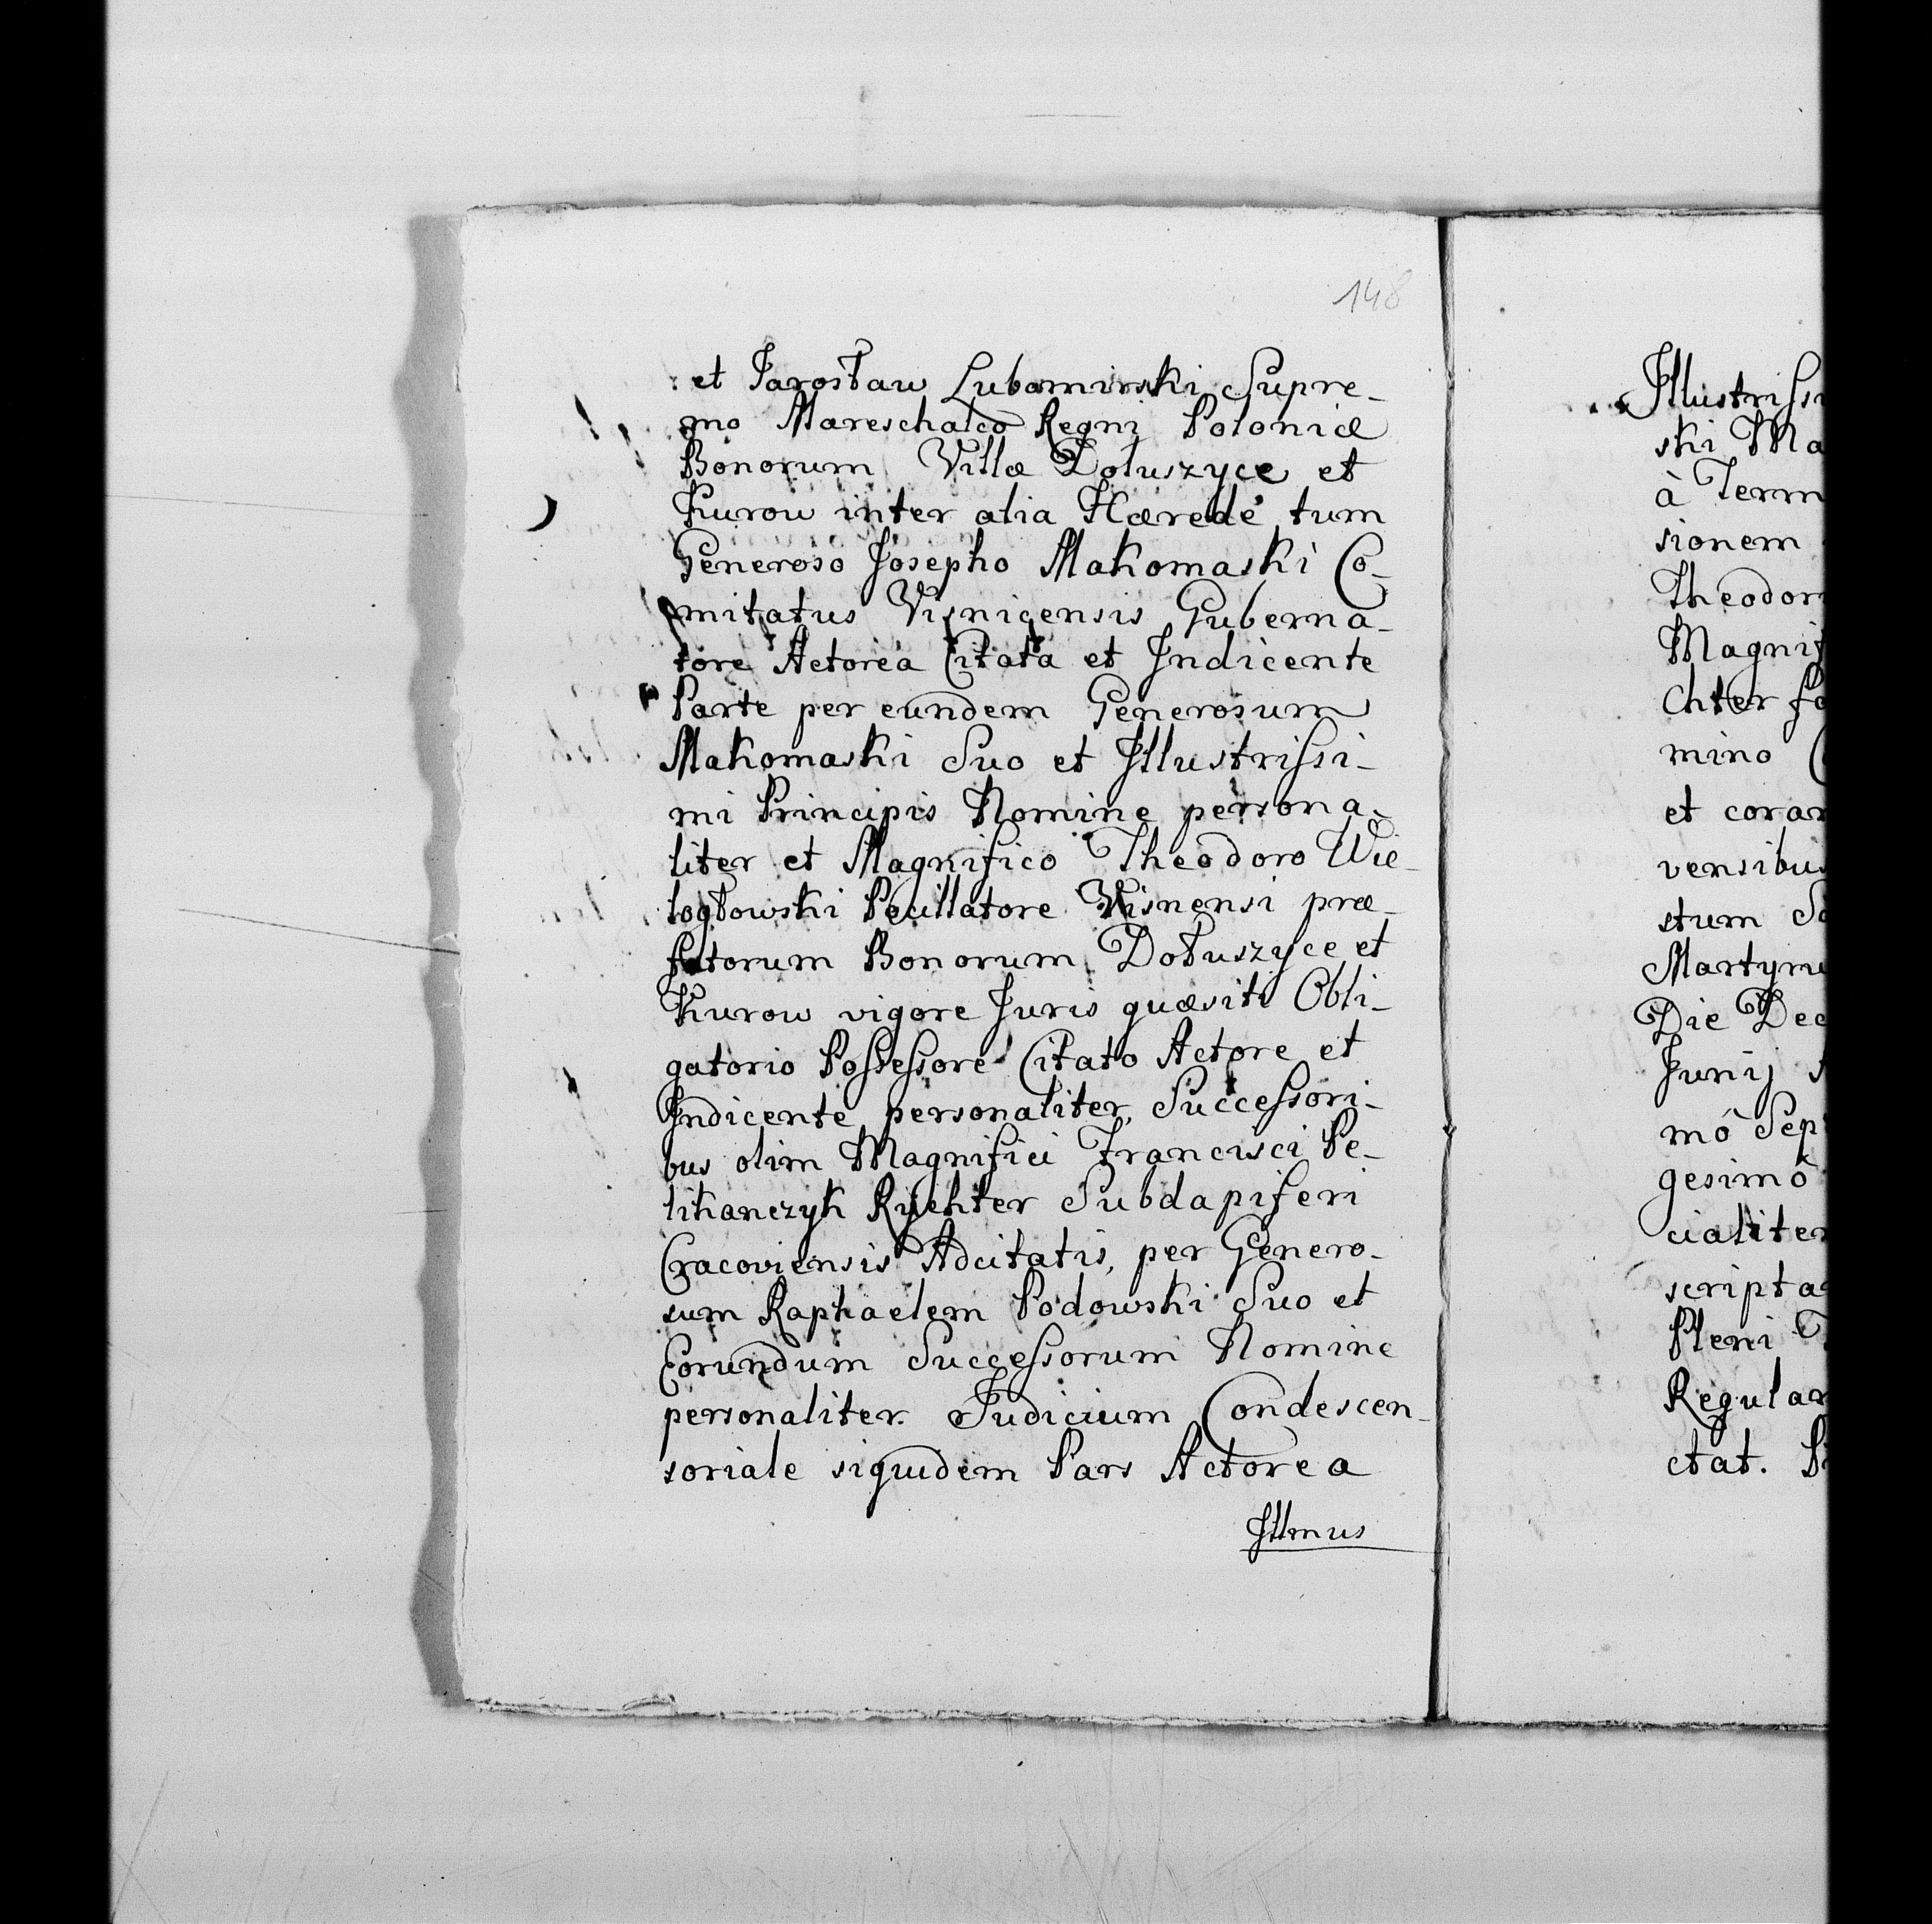 148
et Jarosław Lubomirski Supre-
mo Mareschalco Regni Poloniæ
Bonorum Villæ Doluszyce et
Kurow inter alia Hærede tum
Generoso Josepho Makomaski Co-
mitatus Visnicensis Guberna-
tore Actorea Citata et Indicente
Parte per eundem Generosum
Makomaski Suo et Illustrissi-
mi Principis Nomine persona-
liter et Magnifico Theodoro Wie-
logłowski Pocillatore Visnensi præ-
fatorum Bonorum Dołuszyce et
Kurow vigore Juris quæsiti Obli-
gatorio Possessore Citato Actore et
Indicente personaliter, Successori-
bus olim Magnifici Francisci Pe-
likanczyk Rychter Subdapiferi
Cracoviensis Adcitatis, per Genero-
sum Raphaelem Podowski Suo et
Eorundum Successorum Nomine
personaliter. Judicium Condescen-
soriale siquidem Pars Actorea
Illmus
Illustrissi
ski Ma
à Term
sionem
Theodor
Magnif
chter fa
mino
et coram
vensibus
stum Sa
Martyru
Die Dec
Junij
mô Sep
gesimô
cialiter
scripta
Pleni
Regular
ctat. P